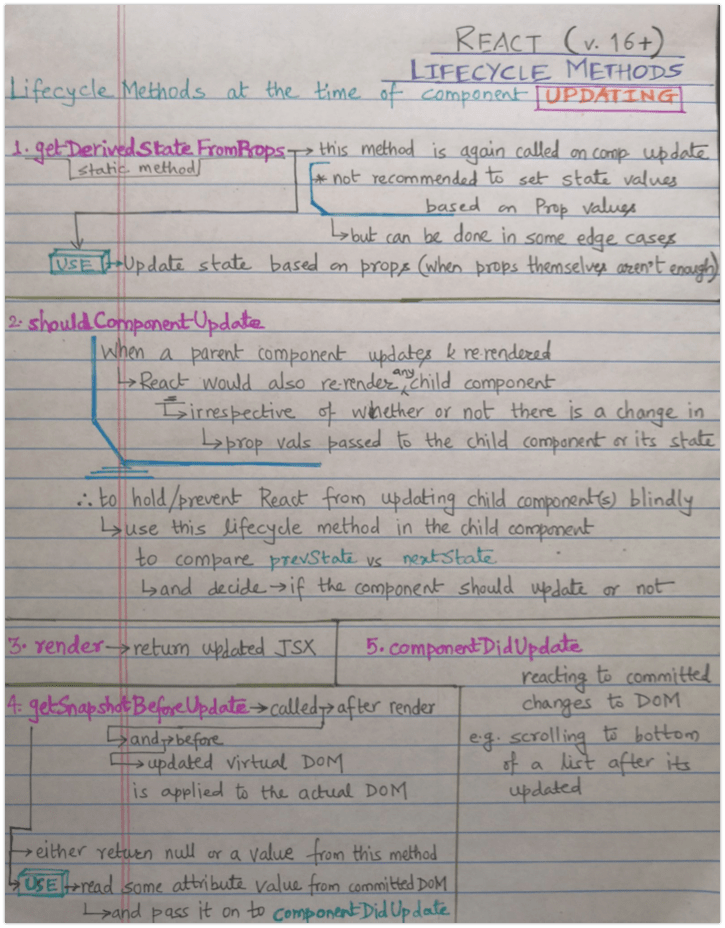 REACT (v. 16+)
LIFECYCLE METHODS
Lifecycle Methods at the time of component UPDATING
1. getDerivedStateFromProps → this method is again called on comp update
static method
* not recommended to set state values
based on Prop values
↳ but can be done in some edge cases
USE → Update state based on props (when props themselves aren't enough)
2. shouldComponentUpdate
When a parent component updates & re-rendered
↳ React would also re-render any child component
↳ irrespective of whether or not there is a change in
↳ prop vals passed to the child component or its state
∴ to hold/prevent React from updating child component(s) blindly
↳ use this lifecycle method in the child component
to compare prevState vs nextState
↳ and decide → if the component should update or not
3. render → return updated JSX
4. getSnapshotBeforeUpdate → called → after render
↳ and → before
↳ updated virtual DOM
is applied to the actual DOM
→ either return null or a value from this method
USE → read some attribute value from committed DOM
↳ and pass it on to componentDidUpdate
5. componentDidUpdate
reacting to committed
changes to DOM
e.g. scrolling to bottom
of a list after its
updated